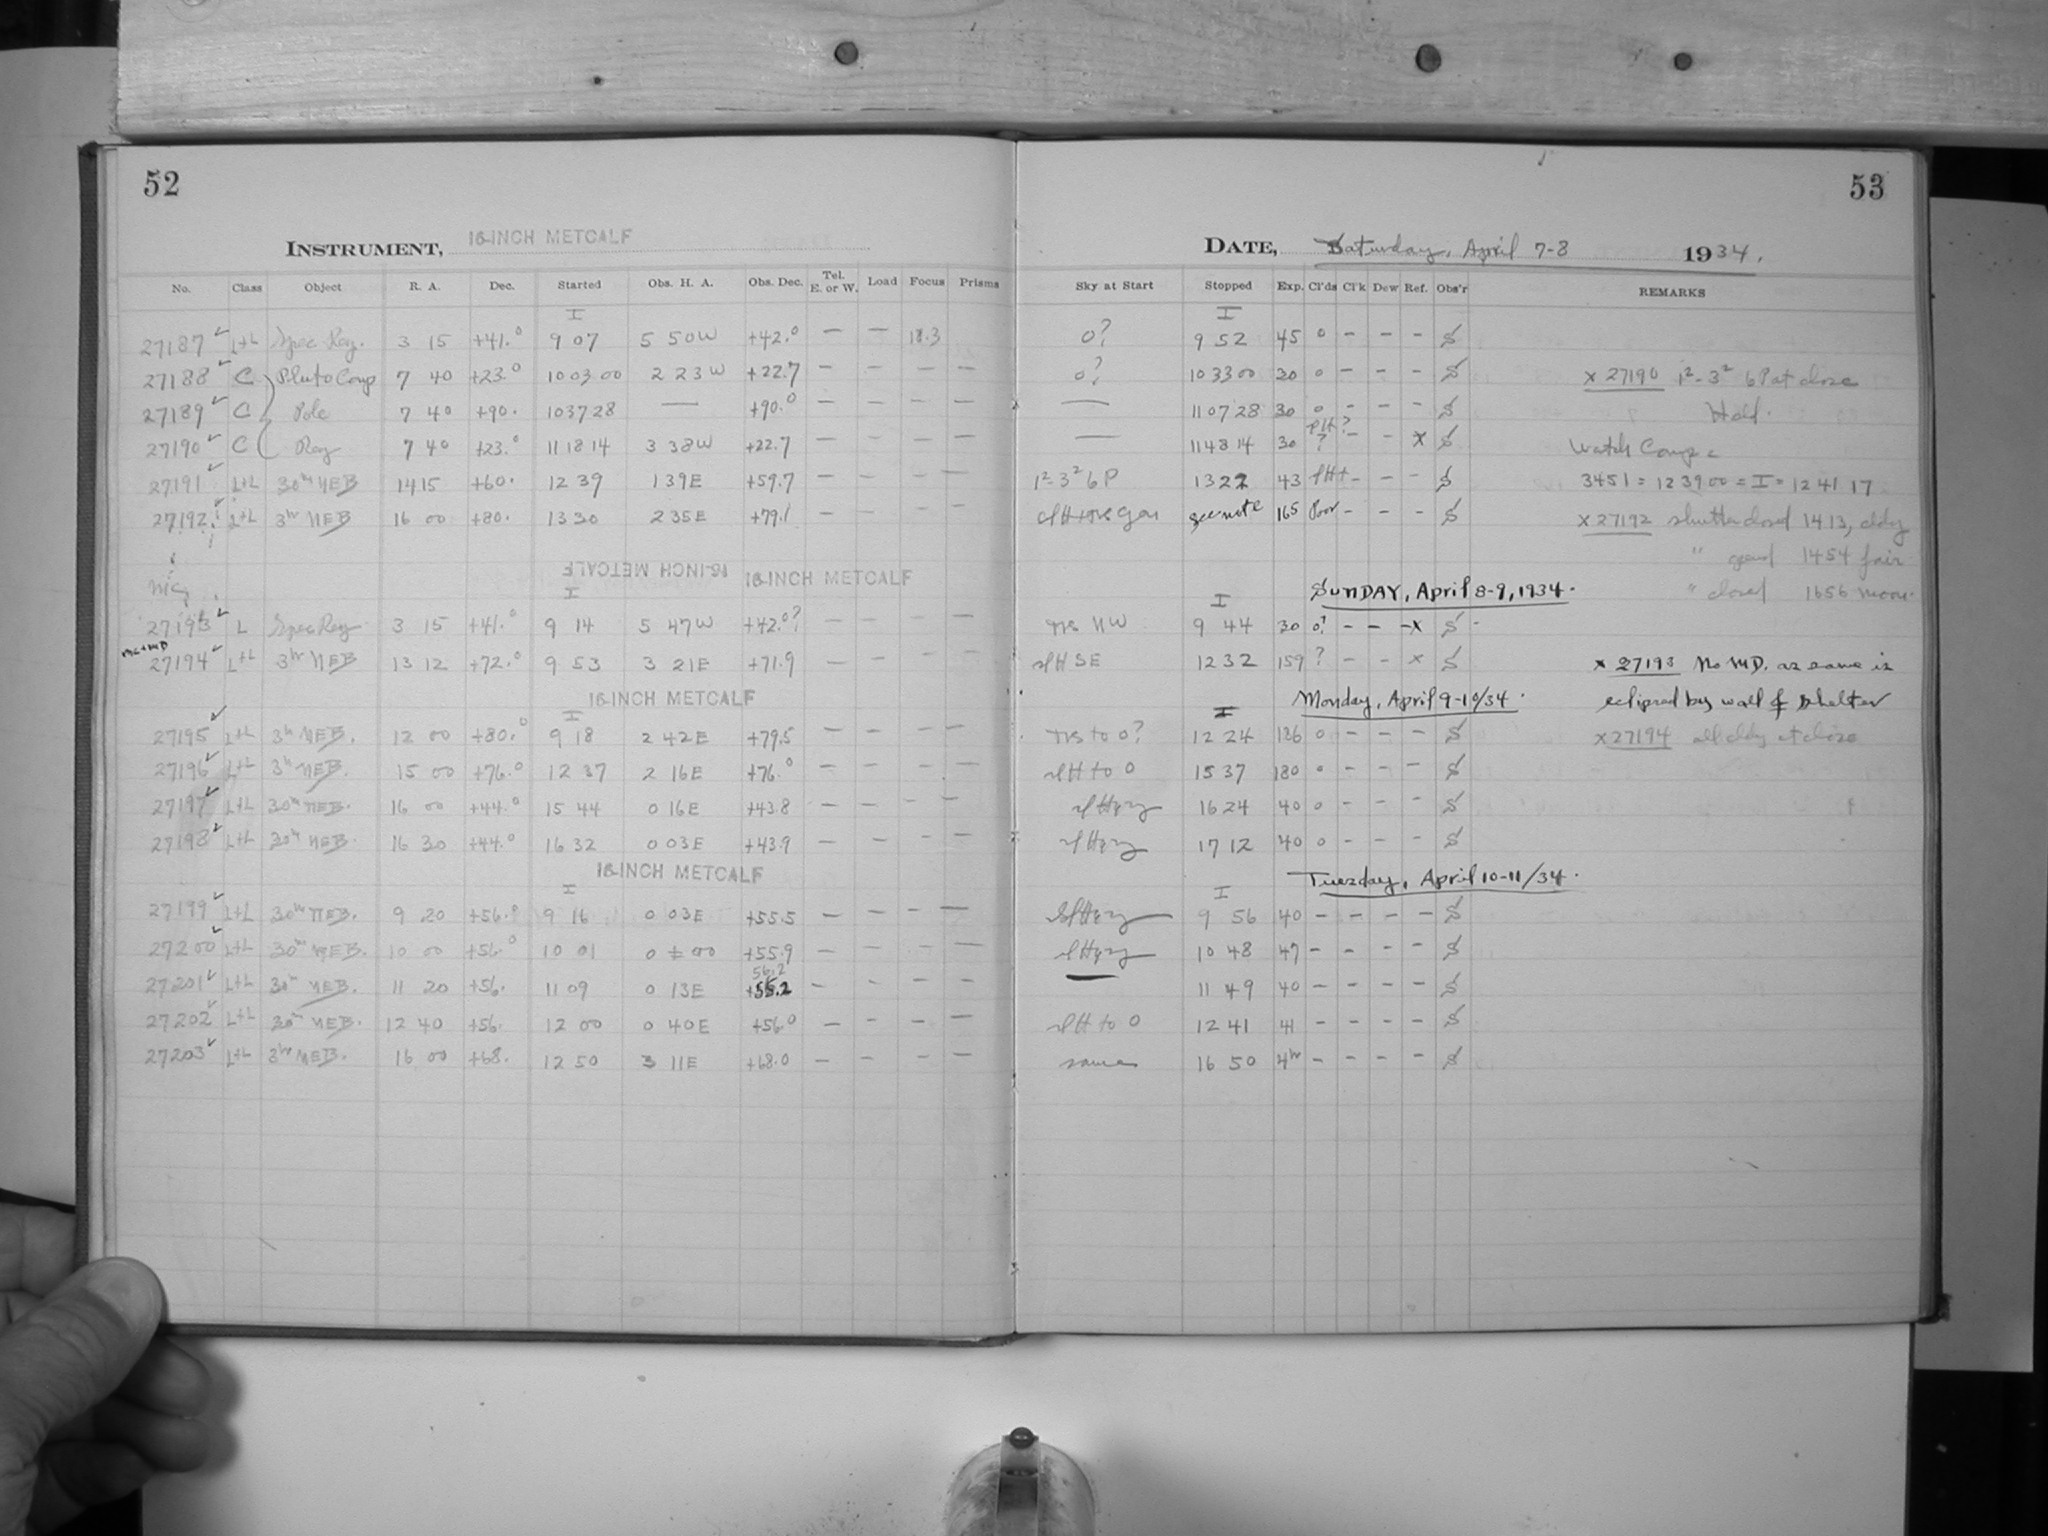 52
INSTRUMENT, 16-INCH METCALF
No. Class Object R. A. Dec. Started Obs. H. A. Obs. Dec. Tel. E. or W. Load Focus Prisms
I
27187 ✓ L+L Spec Reg. 3 15 +41.0 9 07 5 50W +42.0 — — 18.3
27188 ✓ C Pluto Comp 7 40 +23.0 10 03 00 2 23W +22.7 — — — —
27189 ✓ C Pole 7 40 +90. 10 37 28 — +90.0 — — — —
27190 ✓ C Reg 7 40 +23.0 11 18 14 3 38W +22.7 — — — —
27191 ✓ L+L 30m NEB 14 15 +60. 12 39 1 39E +59.7 — — — —
27192 ✓ L+L 3hr NEB 16 00 +80. 13 30 2 35E +79.1 — — — —
16-INCH METCALF 16-INCH METCALF
I
27193 ✓ L Spec Reg 3 15 +41.0 9 14 5 47W +42.0? — — — —
MC+MD
27194 ✓ L+L 3hr NEB 13 12 +72.0 9 53 3 21E +71.9 — — — —
16-INCH METCALF
I
27195 ✓ L+L 3h NEB. 12 00 +80.0 9 18 2 42E +79.5 — — — —
27196 ✓ L+L 3h NEB. 15 00 +76.0 12 37 2 16E +76.0 — — — —
27197 ✓ L+L 30m NEB. 16 00 +44.0 15 44 0 16E +43.8 — — — —
27198 ✓ L+L 30m NEB. 16 30 +44.0 16 32 0 03E +43.9 — — — —
16-INCH METCALF
I
27199 ✓ L+L 30m NEB. 9 20 +56.0 9 16 0 03E +55.5 — — — —
27200 ✓ L+L 30m NEB. 10 00 +56.0 10 01 0 ± 00 +55.9 — — — —
56.2
27201 ✓ L+L 30m NEB. 11 20 +56. 11 09 0 13E +55.2 — — — —
27202 ✓ L+L 30m NEB. 12 40 +56. 12 00 0 40E +56.0 — — — —
27203 ✓ L+L 3hr NEB. 16 00 +68. 12 50 3 11E +68.0 — — — —
53
DATE, Saturday, April 7-8 1934.
Sky at Start Stopped Exp. Cl'ds Cl'k Dew Ref. Obs'r REMARKS
I
0? 9 52 45 0 - - - S
0? 10 33 00 30 0 - - - S x 27190 1²-3² 6P at close
— 11 07 28 30 0 - - - S Held.
— 11 48 14 30 ? - - x S Watch Comp
1²-3² 6P 13 22 43 - - - S 3451 = 12 39 00 = I = 12 41 17
see note 165 Poor - - - S x 27192 shutter closed 1413, cldy
" opened 1454 fair
SUNDAY, April 8-9, 1934. " closed 1656 moon.
I
NW 9 44 30 0? - - -x S
SE 12 32 159 ? - - x S x 27193 No MD. as same is
Monday, April 9-10/34. eclipsed by wall of shelter
I
to 0? 12 24 186 0 - - - S x 27194 all cldy at close
to 0 15 37 180 0 - - - S
16 24 40 0 - - - S
17 12 40 0 - - - S
Tuesday, April 10-11/34.
I
9 56 40 - - - - S
10 48 47 - - - - S
— 11 49 40 - - - - S
to 0 12 41 41 - - - - S
same 16 50 4hr - - - - S